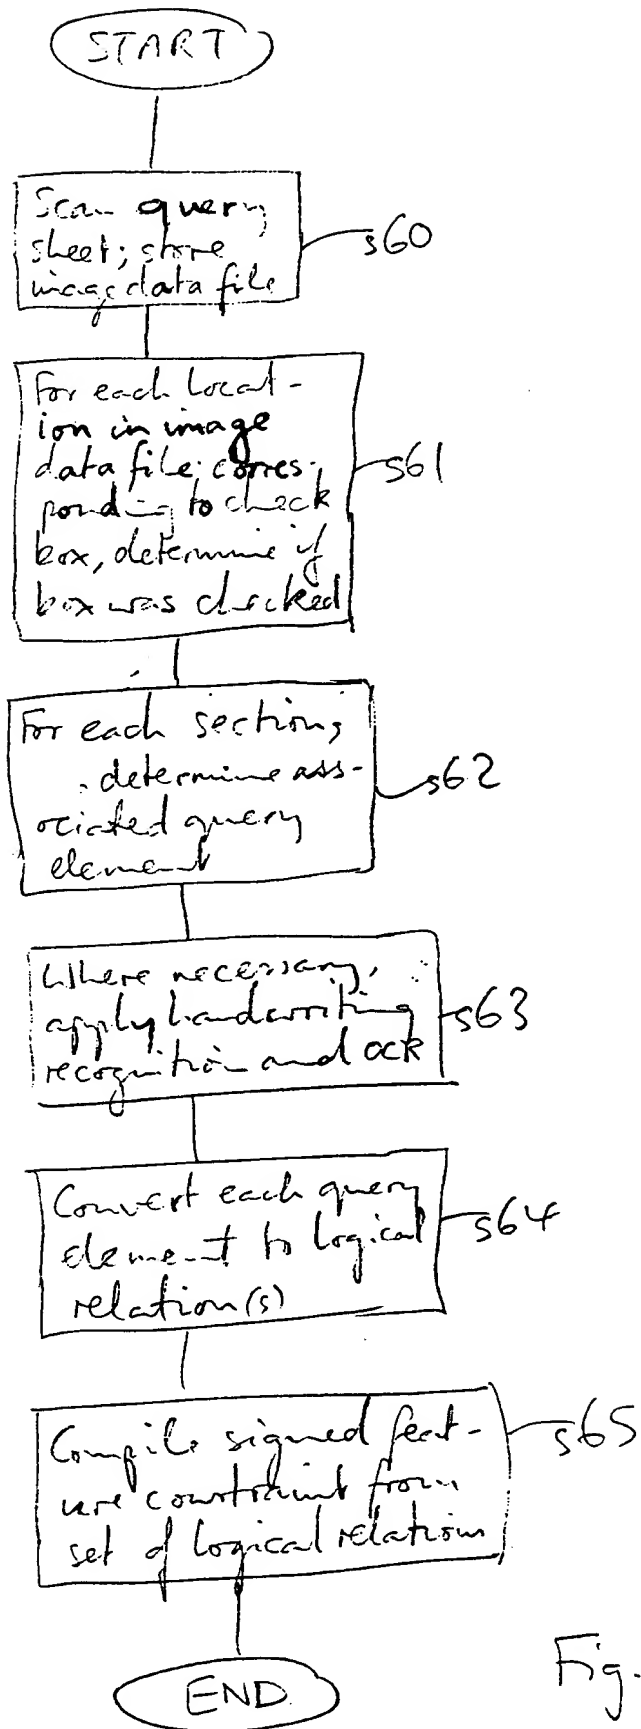 START
Scan query
sheet; store
image data file
s60
For each locat-
ion in image
data file corres-
ponding to check
box, determine if
box was checked
s61
For each section,
determine ass-
ociated query
element
s62
Where necessary,
apply handwriting
recognition and OCR
s63
Convert each query
element to logical
relation(s)
s64
Compile signed feat-
ure constraint from
set of logical relations
s65
END
Fig.